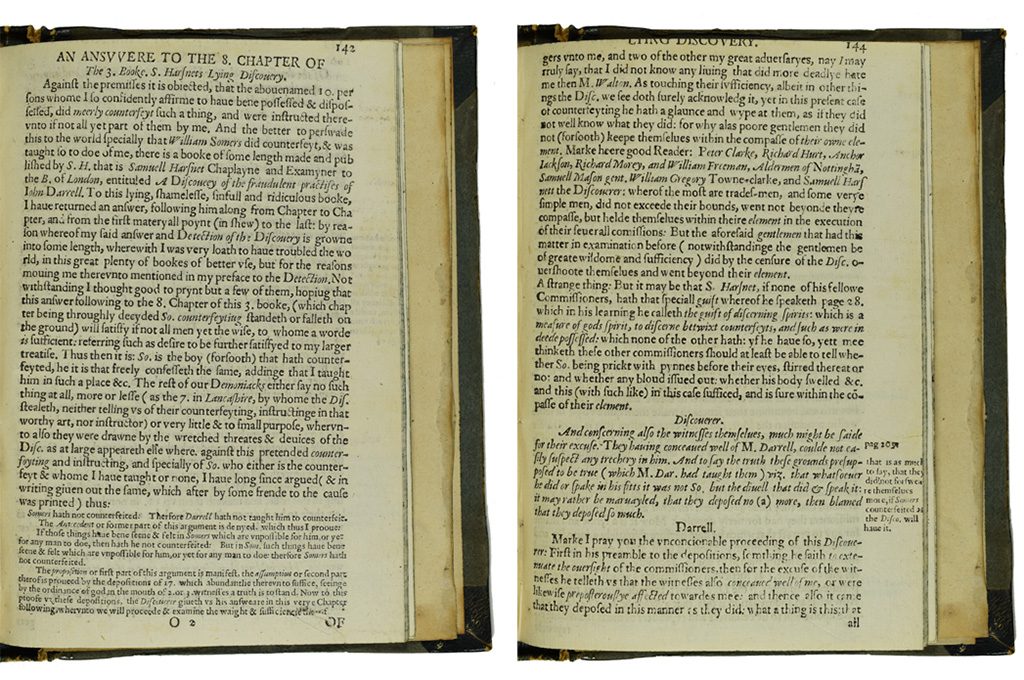 142
AN ANSVVERE TO THE 8. CHAPTER OF
The 3. Booke. S. Harsnets Lying Discouery.
Against the premisses it is obiected, that the abouenamed 10. per
sons whome I so confidently affirme to haue bene possessed & dispos-
sessed, did meerly counterfeyt such a thing, and were instructed there-
vnto if not all yet part of them by me. And the better to perswade
this to the world specially that William Somers did counterfeyt, & was
taught so to doe of me, there is a booke of some length made and pub
lished by S. H. that is Samuell Harsnet Chaplayne and Examyner to
the B. of London, entituled A Discouery of the fraudulent practises of
Iohn Darrell. To this lying, shamelesse, sinfull and ridiculous booke,
I haue returned an answer, following him along from Chapter to Cha
pter, and from the first materyall poynt (in shew) to the last: by rea-
son whereof my said answer and Detection of the Discouery is growne
into some length, wherewith I was very loath to haue troubled the wo
rld, in this great plenty of bookes of better vse, but for the reasons
mouing me therevnto mentioned in my preface to the Detection. Not
withstanding I thought good to prynt but a few of them, hopiug that
this answer following to the 8. Chapter of this 3. booke, (which chap
ter being throughly decyded So. counterfeytiug standeth or falleth on
the ground) will satisfy if not all men yet the wise, to whome a worde
is sufficient: referring such as desire to be further satisfyed to my larger
treatise. Thus then it is: So. is the boy (forsooth) that hath counter-
feyted, he it is that freely confesseth the same, addinge that I taught
him in such a place &c. The rest of our Demoniacks either say no such
thing at all, more or lesse (as the 7. in Lancashire, by whome the Dis.
stealeth, neither telling vs of their counterfeyting, instructinge in that
worthy art, nor instructor) or very little & to small purpose, whervn-
to also they were drawne by the wretched threates & deuices of the
Disc. as at large appeareth else where. against this pretended counter-
feyting and instructing, and specially of So. who either is the counter-
feyt & whome I haue taught or none, I haue long since argued (& in
writing giuen out the same, which after by some frende to the cause
was printed) thus:
Somers hath not counterfeited: Therfore Darrell hath not taught him to counterfeite.
The Antecedent or former part of this argument is denyed. which thus I prooue:
If those things haue bene seene & felt in Somers which are vnpossible for him, or yet
for any man to doe, then hath he not counterfeited: But in Som. such things haue bene
seene & felt which are vnpossible for him, or yet for any man to doe: therfore Somers hath
not counterfeited.
The proposition or first part of this argument is manifest. the assumption or second part
therof is proued by the depositions of 17. which abundanthe therevnto suffice, seeing
by the ordinance of god, in the mouth of 2. or 3. witnesses a truth is to stand. Now to this
proofe vz these depositions. the Discouerer giueth vs his answeare in this verye Chapter
following, wherevnto we will proceede & examine the waight & sufficiencie
O 2
OF
LYING DISCOVERY.
144
gers vnto me, and two of the other my great aduersaryes, nay I may
rruly say, that I did not know any liuing that did more deadlye hate
me then M. Walton. As touching their sufficiency, albeit in other thi-
ngs the Disc. we see doth surely acknowledg it, yet in this present case
of counterfeyting he hath a glaunce and wype at them, as if they did
not well know what they did: for why alas poore gentlemen they did
not (forsooth) keepe themselues within the compasse of their owne ele-
ment. Marke heere good Reader: Peter Clarke, Richard Hurt, Anchor
Iackson, Richard Morey, and William Freeman, Aldermen of Nottinghã,
Samuell Mason gent. William Gregory Towne-clarke, and Samuell Hars
nett the Discouerer: wherof the most are trades-men, and some verye
simple men, did not exceede their bounds, went not beyonde theyre
compasse, but helde themselues within theire element in the execution
of their seuerall comissions: But the aforesaid gentlemen that had this
matter in examination before ( notwithstandinge the gentlemen be
of greate wisdome and sufficiency ) did by the censure of the Disc. o-
uershoote themselues and went beyond their element.
A strange thing: But it may be that S. Harsnet, if none of his fellowe
Commissioners, hath that speciall guift whereof he speaketh page 28.
which in his learning he calleth the guift of discerning spirits: which is a
measure of gods spirit, to discerne betwixt counterfeyts, and such as were in
deede possessed: which none of the other hath: yf he haue so, yett mee
thinketh these other commissioners should at least be able to tell whe-
ther So. being prickt with pynnes before their eyes, stirred thereat or
no: and whether any bloud issued out: whether his body swelled &c.
and this (with such like) in this case sufficed, and is sure within the cõ-
passe of their element.
Discouerer.
And concerning also the witnesses themselues, much might be saide
for their excuse. They having conceaued well of M. Darrell, coulde not ea-
sily suspect any trechery in him. And to say the truth these grounds presup-
posed to be true (which M. Dar. had taught them) viz. that whatsoeuer
he did or spake in his fitts it was not So. but the diuell that did & speak it:
it may rather be maruayled, that they deposed no (a) more, then blamed
that they deposed so much.
pag
that is as much
to say, that they
did not forswea
re themselues
more, if Somers
counterfeited as
the Disco. will
haue it.
Darrell.
Marke I pray you the vnconcionable proceeding of this Discoue-
rer: First in his preamble to the depositions, somthing he saith to exte-
nuate the ouersight of the commissioners. then for the excuse of the wit-
nesses he telleth vs that the witnesses also conceaued well of me, or were
likewise preposterouslye affected towardes mee: and thence also it came
that they deposed in this manner as they did: what a thing is this: at
all